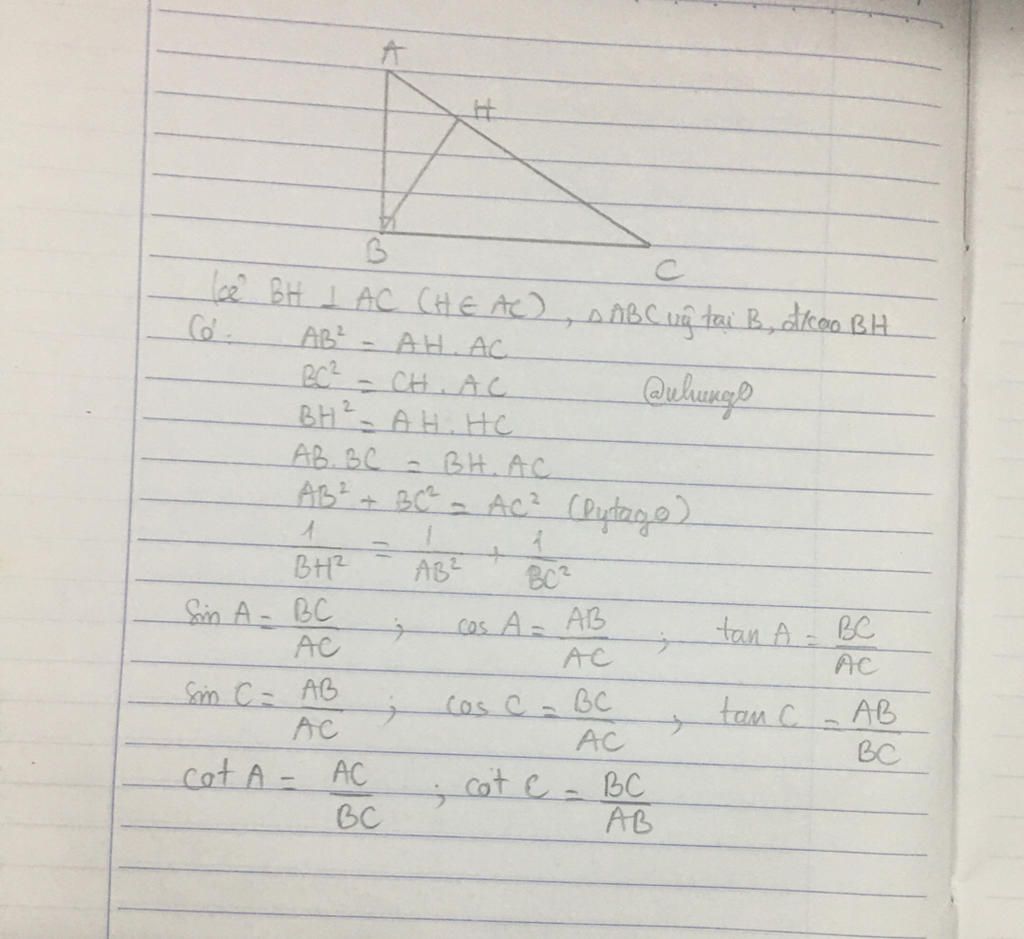 A
H
B
C
Kẻ BH ⊥ AC (H ∈ AC), △ABC vg̃ tại B, đ/cao BH
Có:
AB² = AH . AC
BC² = CH . AC
@uhung0
BH² = AH . HC
AB . BC = BH . AC
AB² + BC² = AC² (Pytago)
1/BH² = 1/AB² + 1/BC²
Sin A = BC/AC ; cos A = AB/AC ; tan A = BC/AC
Sin C = AB/AC ; cos C = BC/AC ; tan C = AB/BC
cot A = AC/BC ; cot C = BC/AB